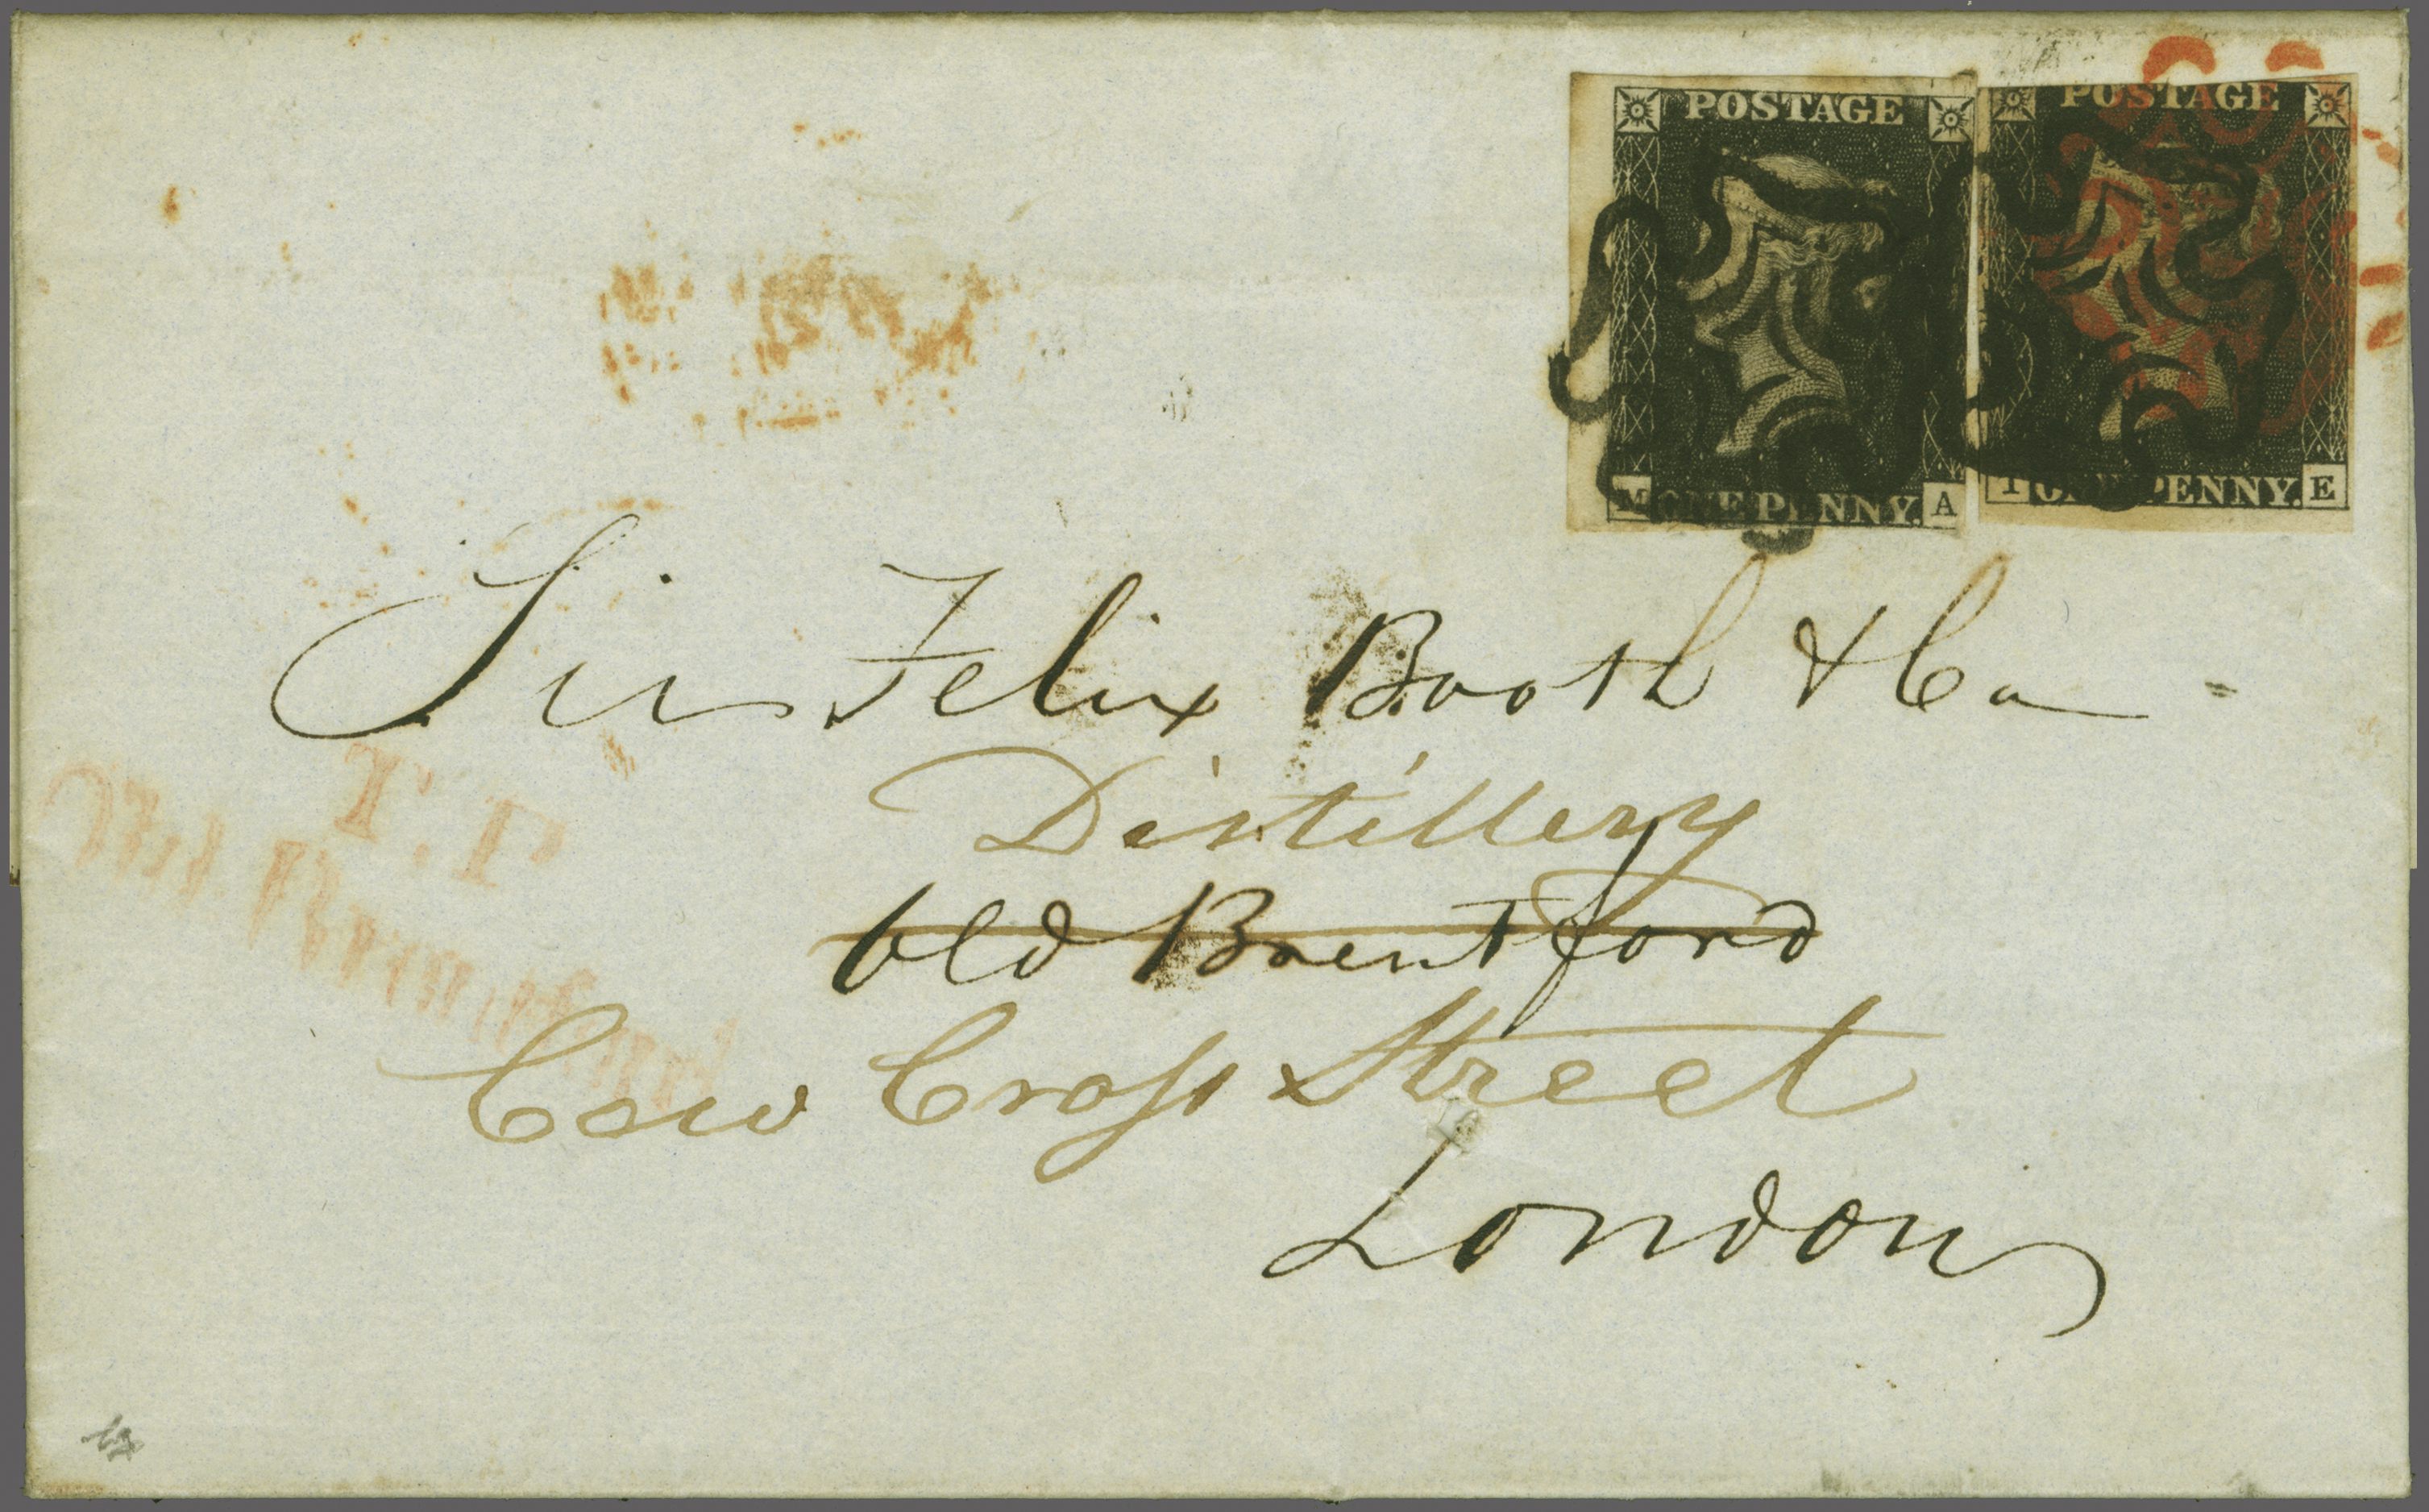 POSTAGE POSTAGE
M ONE PENNY. A ONE PENNY. E
Sir Felix Booth & Co
T.P.
Distillery
Old Brentford
Cow Cross Street
London